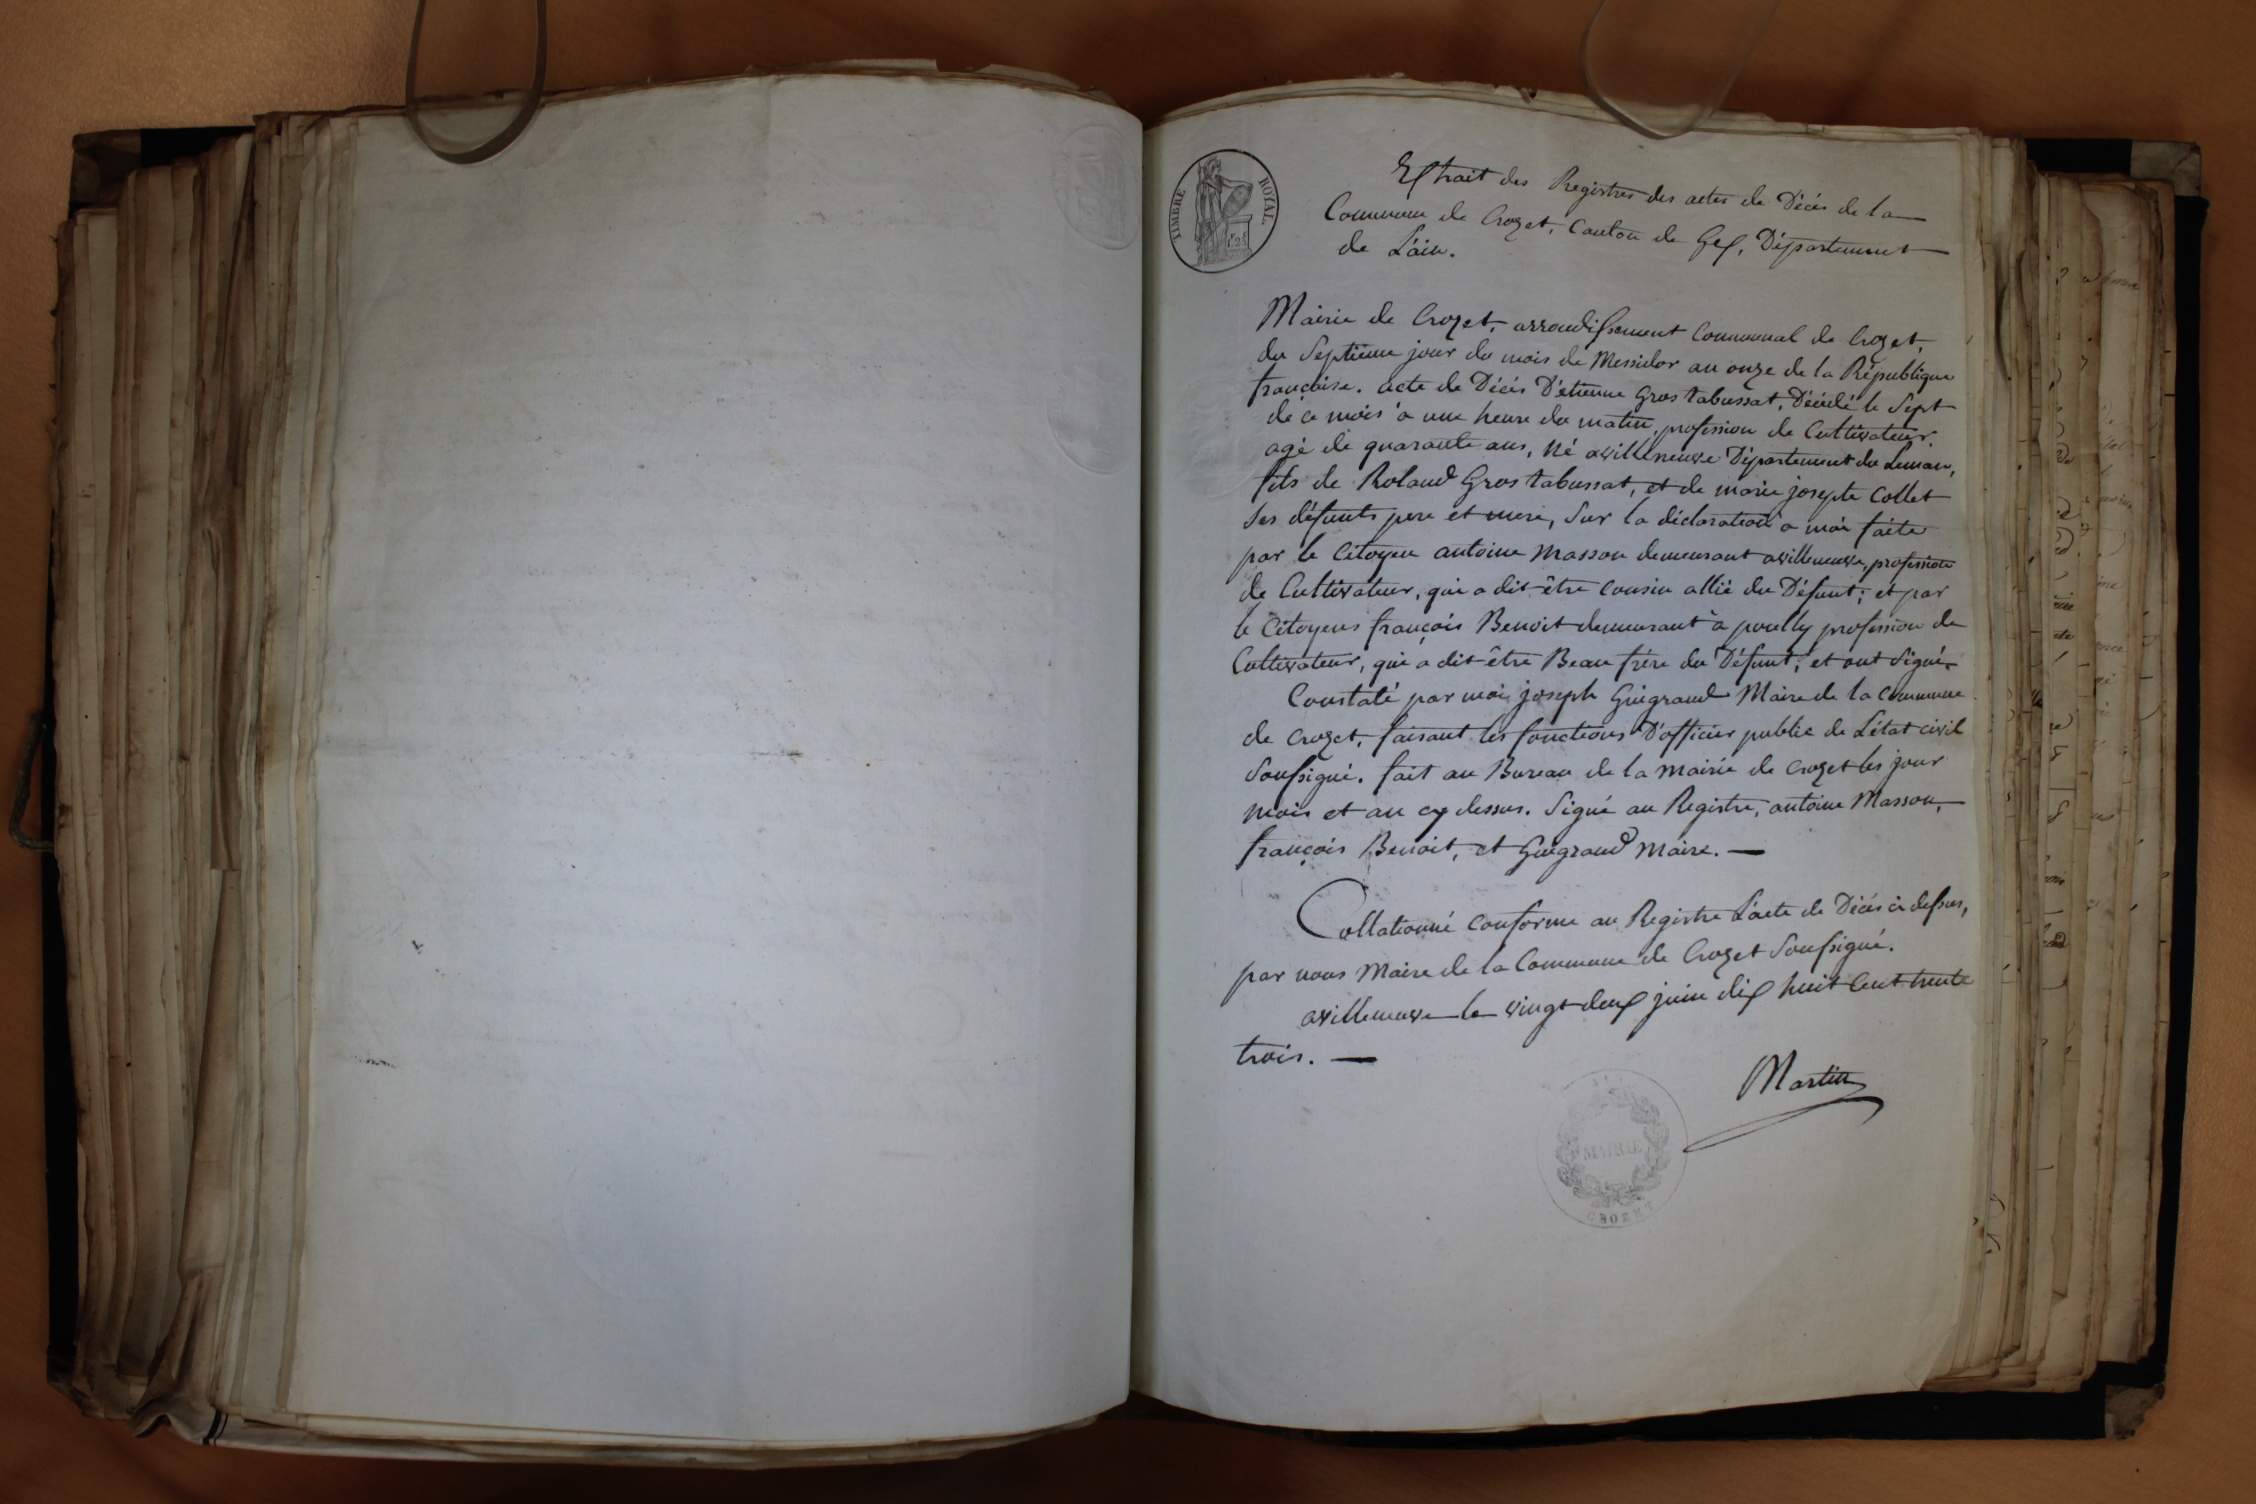 TIMBRE ROYAL.
Extrait des Registres des actes de Décès de la
Commune de Crozet, Canton de Gex, Département
de L'ain.
Mairie de Crozet, arrondissement Communal de Crozet,
du Septième jour du mois de Messidor an onze de la République
françoise. acte de Décès D'étienne Gros tabussat, Décédé le Sept
de ce mois à une heure du matin, profession de Cultivateur.
agé de quarante ans, Né avilleneuve Département du Leman,
fils de Roland Gros tabussat, et de marie josephe Collet
Ses défunts pere et mere, Sur la déclaration a moi faite
par le Citoyen antoine Masson demeurant avilleneuve, profession
de Cultivateur, qui a dit être cousin allié du Défunt; et par
le Citoyens françois Benoit demeurant à pouilly profession de
Cultivateur, qui a dit être Beau frére du Défunt; et ont Signé.
Constaté par moi joseph Guigrand Maire de la Commune
de Crozet, faisant les fonctions D'officier public de L'état civil
Soussigné. fait au Bureau de la Mairie de Crozet les jour
mois et an cy dessus. Signé au Registre, antoine Masson,
françois Benoit, et Guigrand Maire. —
Collationné conforme au Registre L'acte de Décès ci dessus,
par nous Maire de la Commune de Crozet Soussigné.
avilleneuve le vingt deux juin dix huit Cent trente
trois. —
Martin
MAIRIE
CROZET